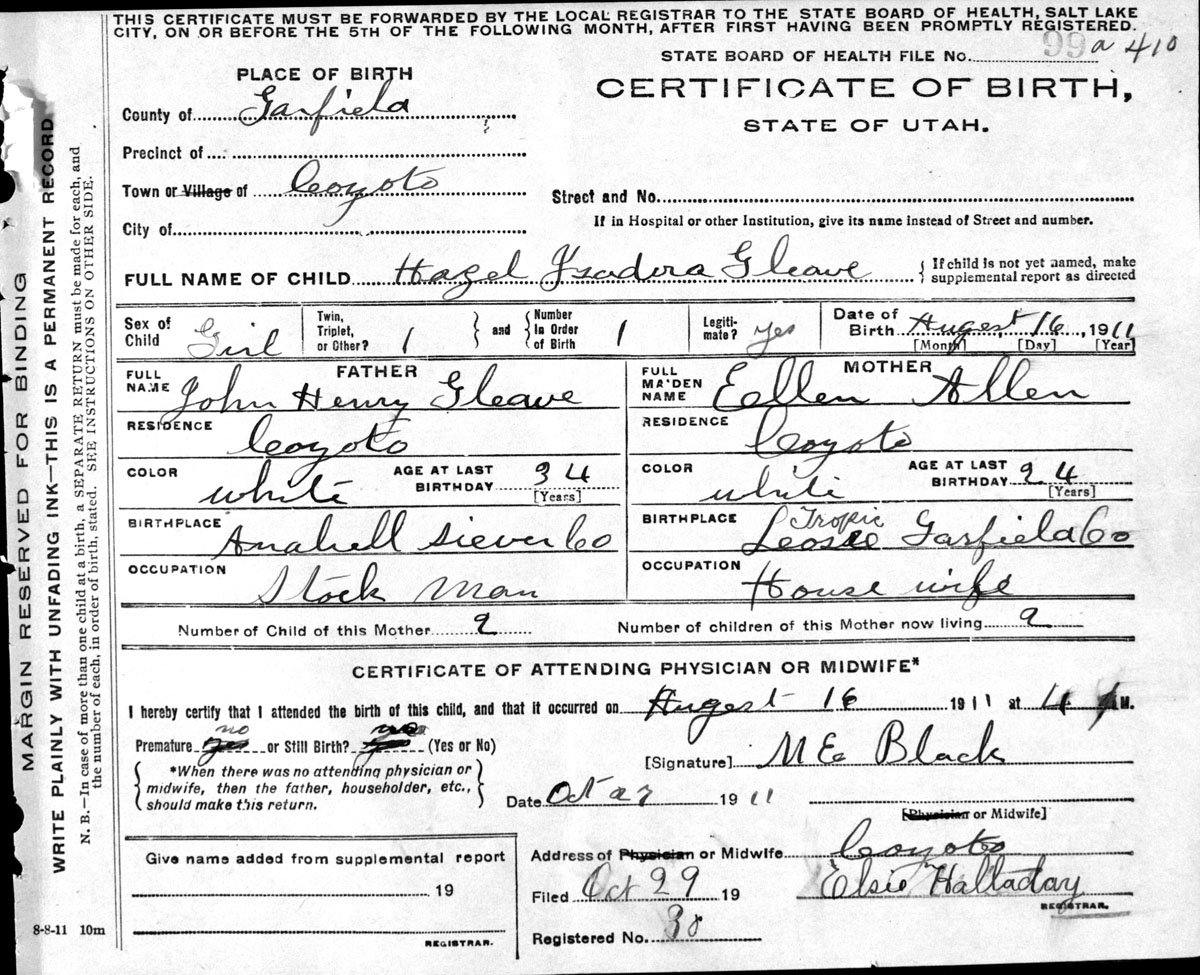 THIS CERTIFICATE MUST BE FORWARDED BY THE LOCAL REGISTRAR TO THE STATE BOARD OF HEALTH, SALT LAKE
CITY, ON OR BEFORE THE 5TH OF THE FOLLOWING MONTH, AFTER FIRST HAVING BEEN PROMPTLY REGISTERED.
STATE BOARD OF HEALTH FILE No. 99 a 410
PLACE OF BIRTH
CERTIFICATE OF BIRTH,
STATE OF UTAH.
County of Garfield
Precinct of
Town or Village of Coyoto
Street and No.
If in Hospital or other Institution, give its name instead of Street and number.
City of
FULL NAME OF CHILD Hazel Yzadora Gleave
{ If child is not yet named, make
supplemental report as directed
Sex of Child Girl
Twin, Triplet, or Other? 1
and
Number In Order of Birth 1
Legiti-mate? yes
Date of Birth Augest 16, 1911
[Month] [Day] [Year]
FATHER
FULL NAME John Henry Gleave
RESIDENCE Coyoto
COLOR white
AGE AT LAST BIRTHDAY 34
[Years]
BIRTHPLACE Anabell Siever Co
OCCUPATION Stock Man
MOTHER
FULL MAIDEN NAME Eellen Allen
RESIDENCE Coyoto
COLOR white
AGE AT LAST BIRTHDAY 24
[Years]
Tropic
BIRTHPLACE Garfield Co
OCCUPATION House wife
Number of Child of this Mother 2
Number of children of this Mother now living 2
CERTIFICATE OF ATTENDING PHYSICIAN OR MIDWIFE*
I hereby certify that I attended the birth of this child, and that it occurred on Augest 16 1911 at 4 M.
Premature no or Still Birth? no (Yes or No)
*When there was no attending physician or
midwife, then the father, householder, etc.,
should make this return.
[Signature] M E Black
Date Oct 27 1911
[Physician or Midwife]
Give name added from supplemental report
19
REGISTRAR.
8-8-11 10m
Address of Physician or Midwife Coyoto
Filed Oct 29 19
Elsie Halladay
REGISTRAR.
Registered No. 30
MARGIN RESERVED FOR BINDING
WRITE PLAINLY WITH UNFADING INK—THIS IS A PERMANENT RECORD
N. B.—In case of more than one child at a birth, a SEPARATE RETURN must be made for each, and
the number of each, in order of birth, stated. SEE INSTRUCTIONS ON OTHER SIDE.